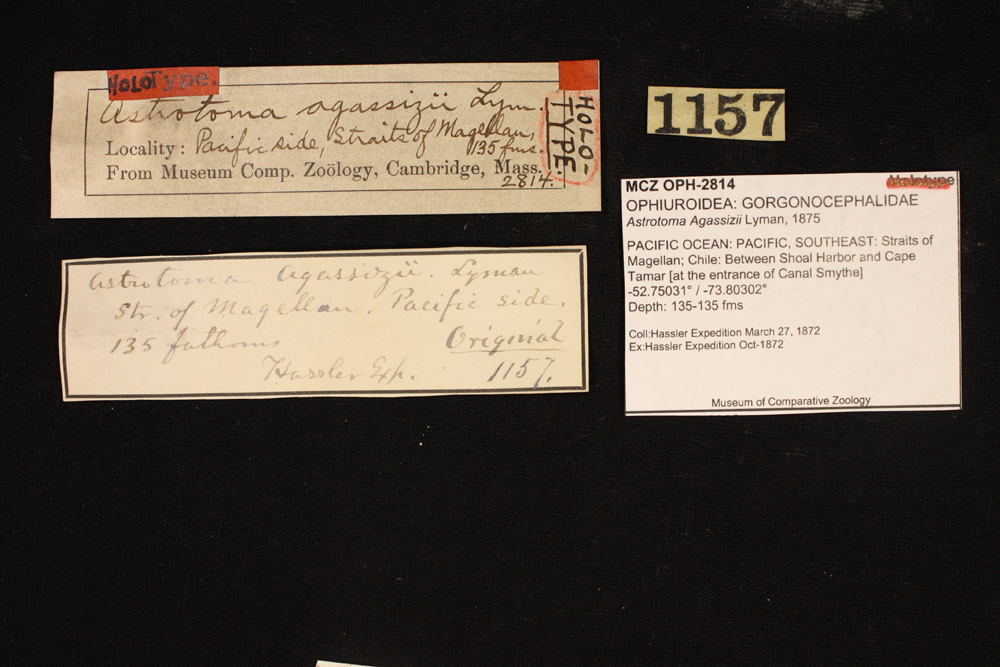 HOLOType.
Astrotoma agassizii Lym.
Locality: Pacific side, Straits of Magellan,
135 fms.
From Museum Comp. Zoölogy, Cambridge, Mass.
2814.
HOLO-
TYPE.
1157
Astrotoma Agassizii. Lyman
Str. of Magellan. Pacific side.
135 fathoms Original
Hassler Exp. 1157.
MCZ OPH-2814 Holotype
OPHIUROIDEA: GORGONOCEPHALIDAE
Astrotoma Agassizii Lyman, 1875
PACIFIC OCEAN: PACIFIC, SOUTHEAST: Straits of
Magellan; Chile: Between Shoal Harbor and Cape
Tamar [at the entrance of Canal Smythe]
-52.75031° / -73.80302°
Depth: 135-135 fms
Coll:Hassler Expedition March 27, 1872
Ex:Hassler Expedition Oct-1872
Museum of Comparative Zoology